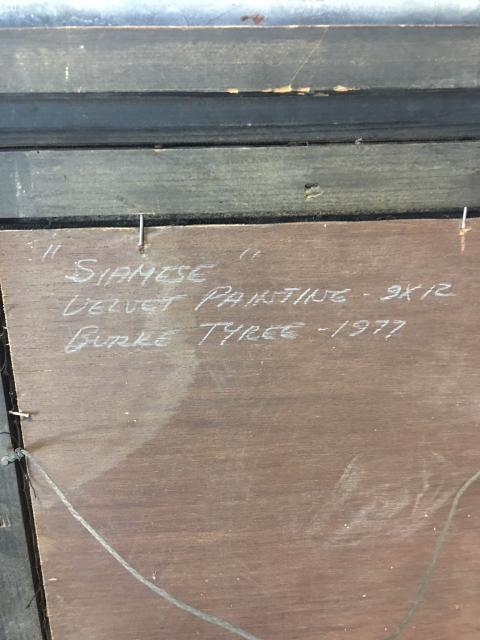 "SIAMESE"
VELVET PAINTING - 9X12
BURKE TYREE - 1977